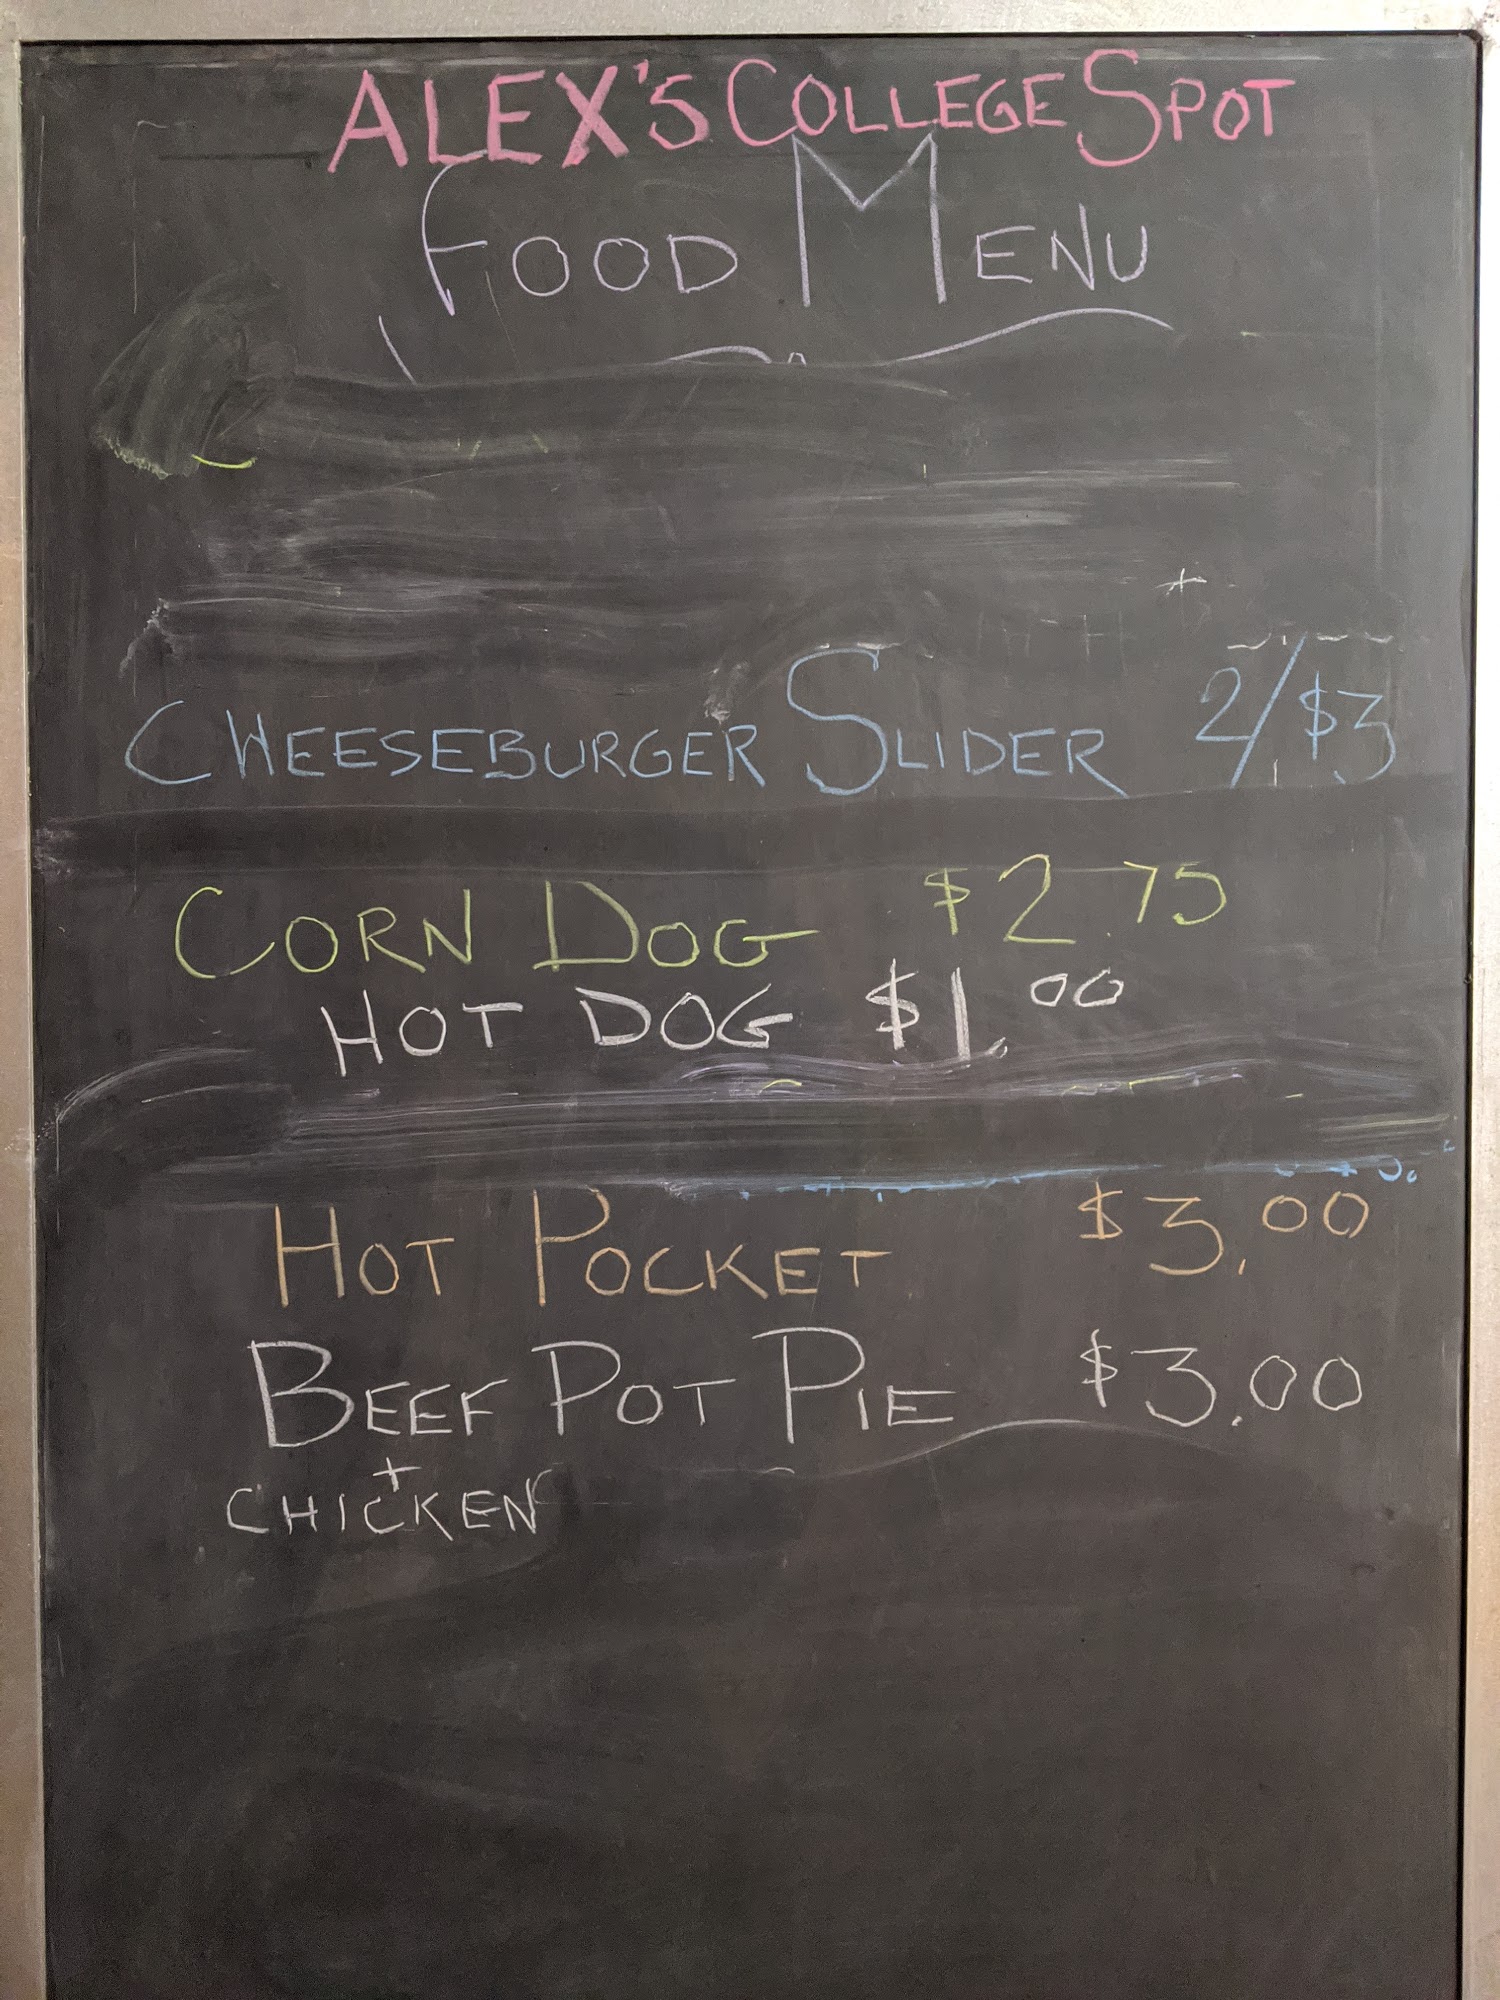 ALEX'S COLLEGE SPOT
FOOD MENU
CHEESEBURGER SLIDER 2/$3
CORN DOG $2.75
HOT DOG $1.00
HOT POCKET $3.00
BEEF POT PIE $3.00
+
CHICKEN